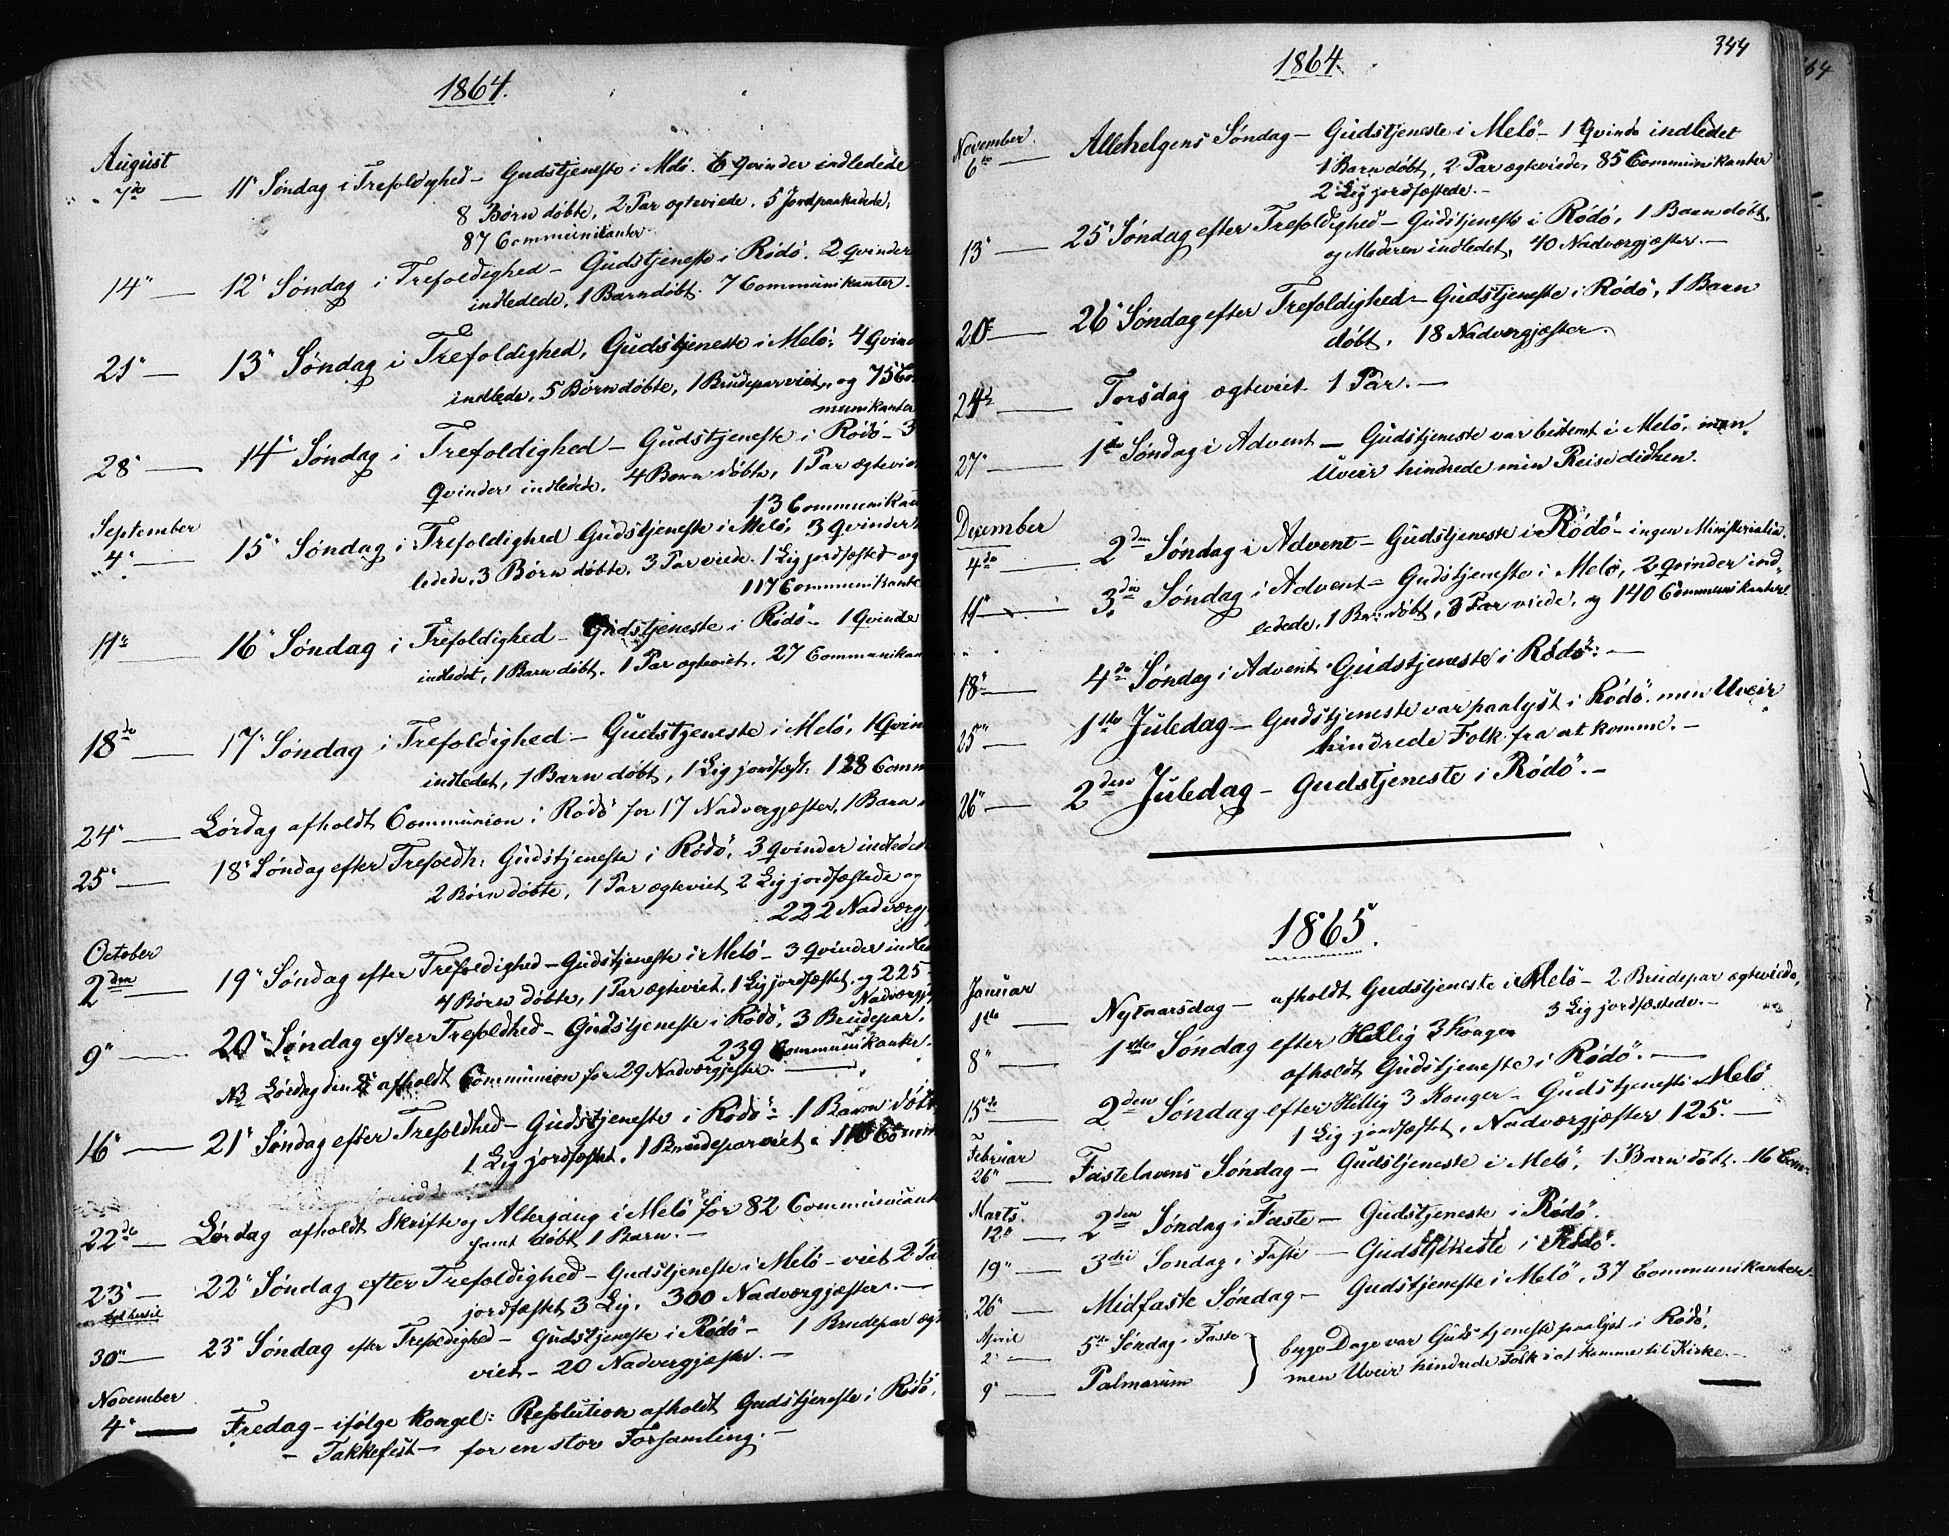 1864.
August
7de — 11' Søndag i Trefoldighed — Gudstjeneste i Melö. 6 Qvinder indledede
8 Børn døbte, 2 Par ægteviede, 5 Jordpaakastede,
87 Communikanter.
14" — 12' Søndag i Trefoldighed — Gudstjeneste i Rödö. 2 Qvinder
indledede, 1 Barn døbt. 7 Communikanter.
21" — 13' Søndag i Trefoldighed, Gudstjeneste i Melö: 4 Qvind
indlede, 5 Børn døbte, 1 Brudepar viet, og 75 Co
munikanter
28" — 14' Søndag i Trefoldighed — Gudstjeneste i Rödö — 3
Qvinder indledede, 4 Børn døbte, 1 Par ægtevie
13 Communikan
September
4" — 15' Søndag i Trefoldighed Gudstjeneste i Melö, 3 Qvinder
ledede, 3 Børn døbte, 3 Par viede. 1 Lig jordfæstet og
117 Communikante
11te — 16' Søndag i Trefoldighed — Gudstjeneste i Rödö — 1 Qvinde
indledet, 1 Barn døbt. 1 Par ægteviet. 27 Communikan
18de — 17' Søndag i Trefoldighed — Gudstjeneste i Melö, 1 Qvin
indledet, 1 Barn døbt, 1 Lig jordfæst: 128 Comm
24" — Lørdag afholdt Communion i Rödö for 17 Nadvergjæster, 1 Barn
25" — 18' Søndag efter Trefoldh: Gudstjeneste i Rödö, 3 Qvinder indlede
2 Børn døbte, 1 Par ægteviet 2 Lig jordfæstede og
222 Nadvergj
October
2den — 19' Søndag efter Trefoldighed — Gudstjeneste i Melö — 3 Qvinder indle
4 Børn døbte, 1 Par ægteviet, 1 Lig jordfæstet, og 225
Nadvergj
9" — 20' Søndag efter Trefoldhed — Gudstjeneste i Rödö, 3 Brudepar,
239 Communikanter.
NB Lørdag den 8' afholdt Communion for 29 Nadvergjæster.
16" — 21' Søndag efter Trefoldhed — Gudstjeneste i Rödö — 1 Barn døbt
1 Lig jordfæstet, 1 Brudepar viet
22de — Lørdag afholdt Skrifte og Altergang i Melö for 82 Communikant
samt døbt 1 Barn. —
23" — 22' Søndag efter Trefoldighed — Gudstjeneste i Melö — viet 2 Pa
jordfæstet 3 Lig. 300 Nadvergjæster. —
30" — 23' Søndag efter Trefoldighed — Gudstjeneste i Rödö — 1 Brudepar ægt
viet — 20 Nadvergjæster. —
November
4" — Fredag — ifølge kongel: Resolution afholdt Gudstjeneste i Rödö,
— Takkefest — for en stor Forsamling. —
344
1864.
November
6te — Allehelgens Søndag — Gudstjeneste i Melö — 1 Qvinde indledet
1 Barn døbt, 2 Par ægteviede, 85 Communikanter
2 Lig jordfæstede. —
13" — 25' Søndag efter Trefoldighed — Gudstjeneste i Rödö, 1 Barn døbt,
og Moderen indledet, 40 Nadvergjæster. —
20" — 26' Søndag efter Trefoldighed — Gudstjeneste i Rödö, 1 Barn
døbt, 18 Nadvergjæster.
24" — Torsdag ægteviet 1 Par. —
27" — 1ste Søndag i Advent — Gudstjeneste var bestemt i Melö, men
Uveir hindrede min Reise didhen.
December
4de — 2den Søndag i Advent — Gudstjeneste i Rödö — ingen Ministerialia.
11" — 3die Søndag i Advent — Gudstjeneste i Melö, 2 Qvinder ind-
ledede, 1 Barn døbt, 3 Par viede, og 140 Communikanter
18" — 4de Søndag i Advent Gudstjeneste i Rödö: —
25" — 1ste Juledag — Gudstjeneste var paalyst i Rödö, men Uveir
hindrede Folk fra at komme. —
26" — 2den Juledag — Gudstjeneste i Rödö. —
1865.
Januar
1ste — Nytaarsdag — afholdt Gudstjeneste i Melö — 2 Brudepar ægteviede,
3 Lig jordfæstede. —
8" — 1ste Søndag efter Hellig 3 Konger
afholdt Gudstjeneste i Rödö. —
15de — 2den Søndag efter Hellig 3 Konger — Gudstjeneste i Melö
1 Lig jordfæstet, Nadvergjæster 125. —
Februar
26" — Fastelavens Søndag — Gudstjeneste i Melö, 1 Barn døbt. 16 Com:
Marts.
12te — 2den Søndag i Faste — Gudstjeneste i Rödö.
19" — 3die Søndag i Faste — Gudstjeneste i Rödö.
26" — Midfaste Søndag — Gudstjeneste i Melö, 37 Communikanter
April
2" — 5te Søndag i Faste } begge Dage var Gudstjeneste paalyst i Rödö,
9" — Palmarum men Uveir hindrede Folk i at komme til Kirke. —